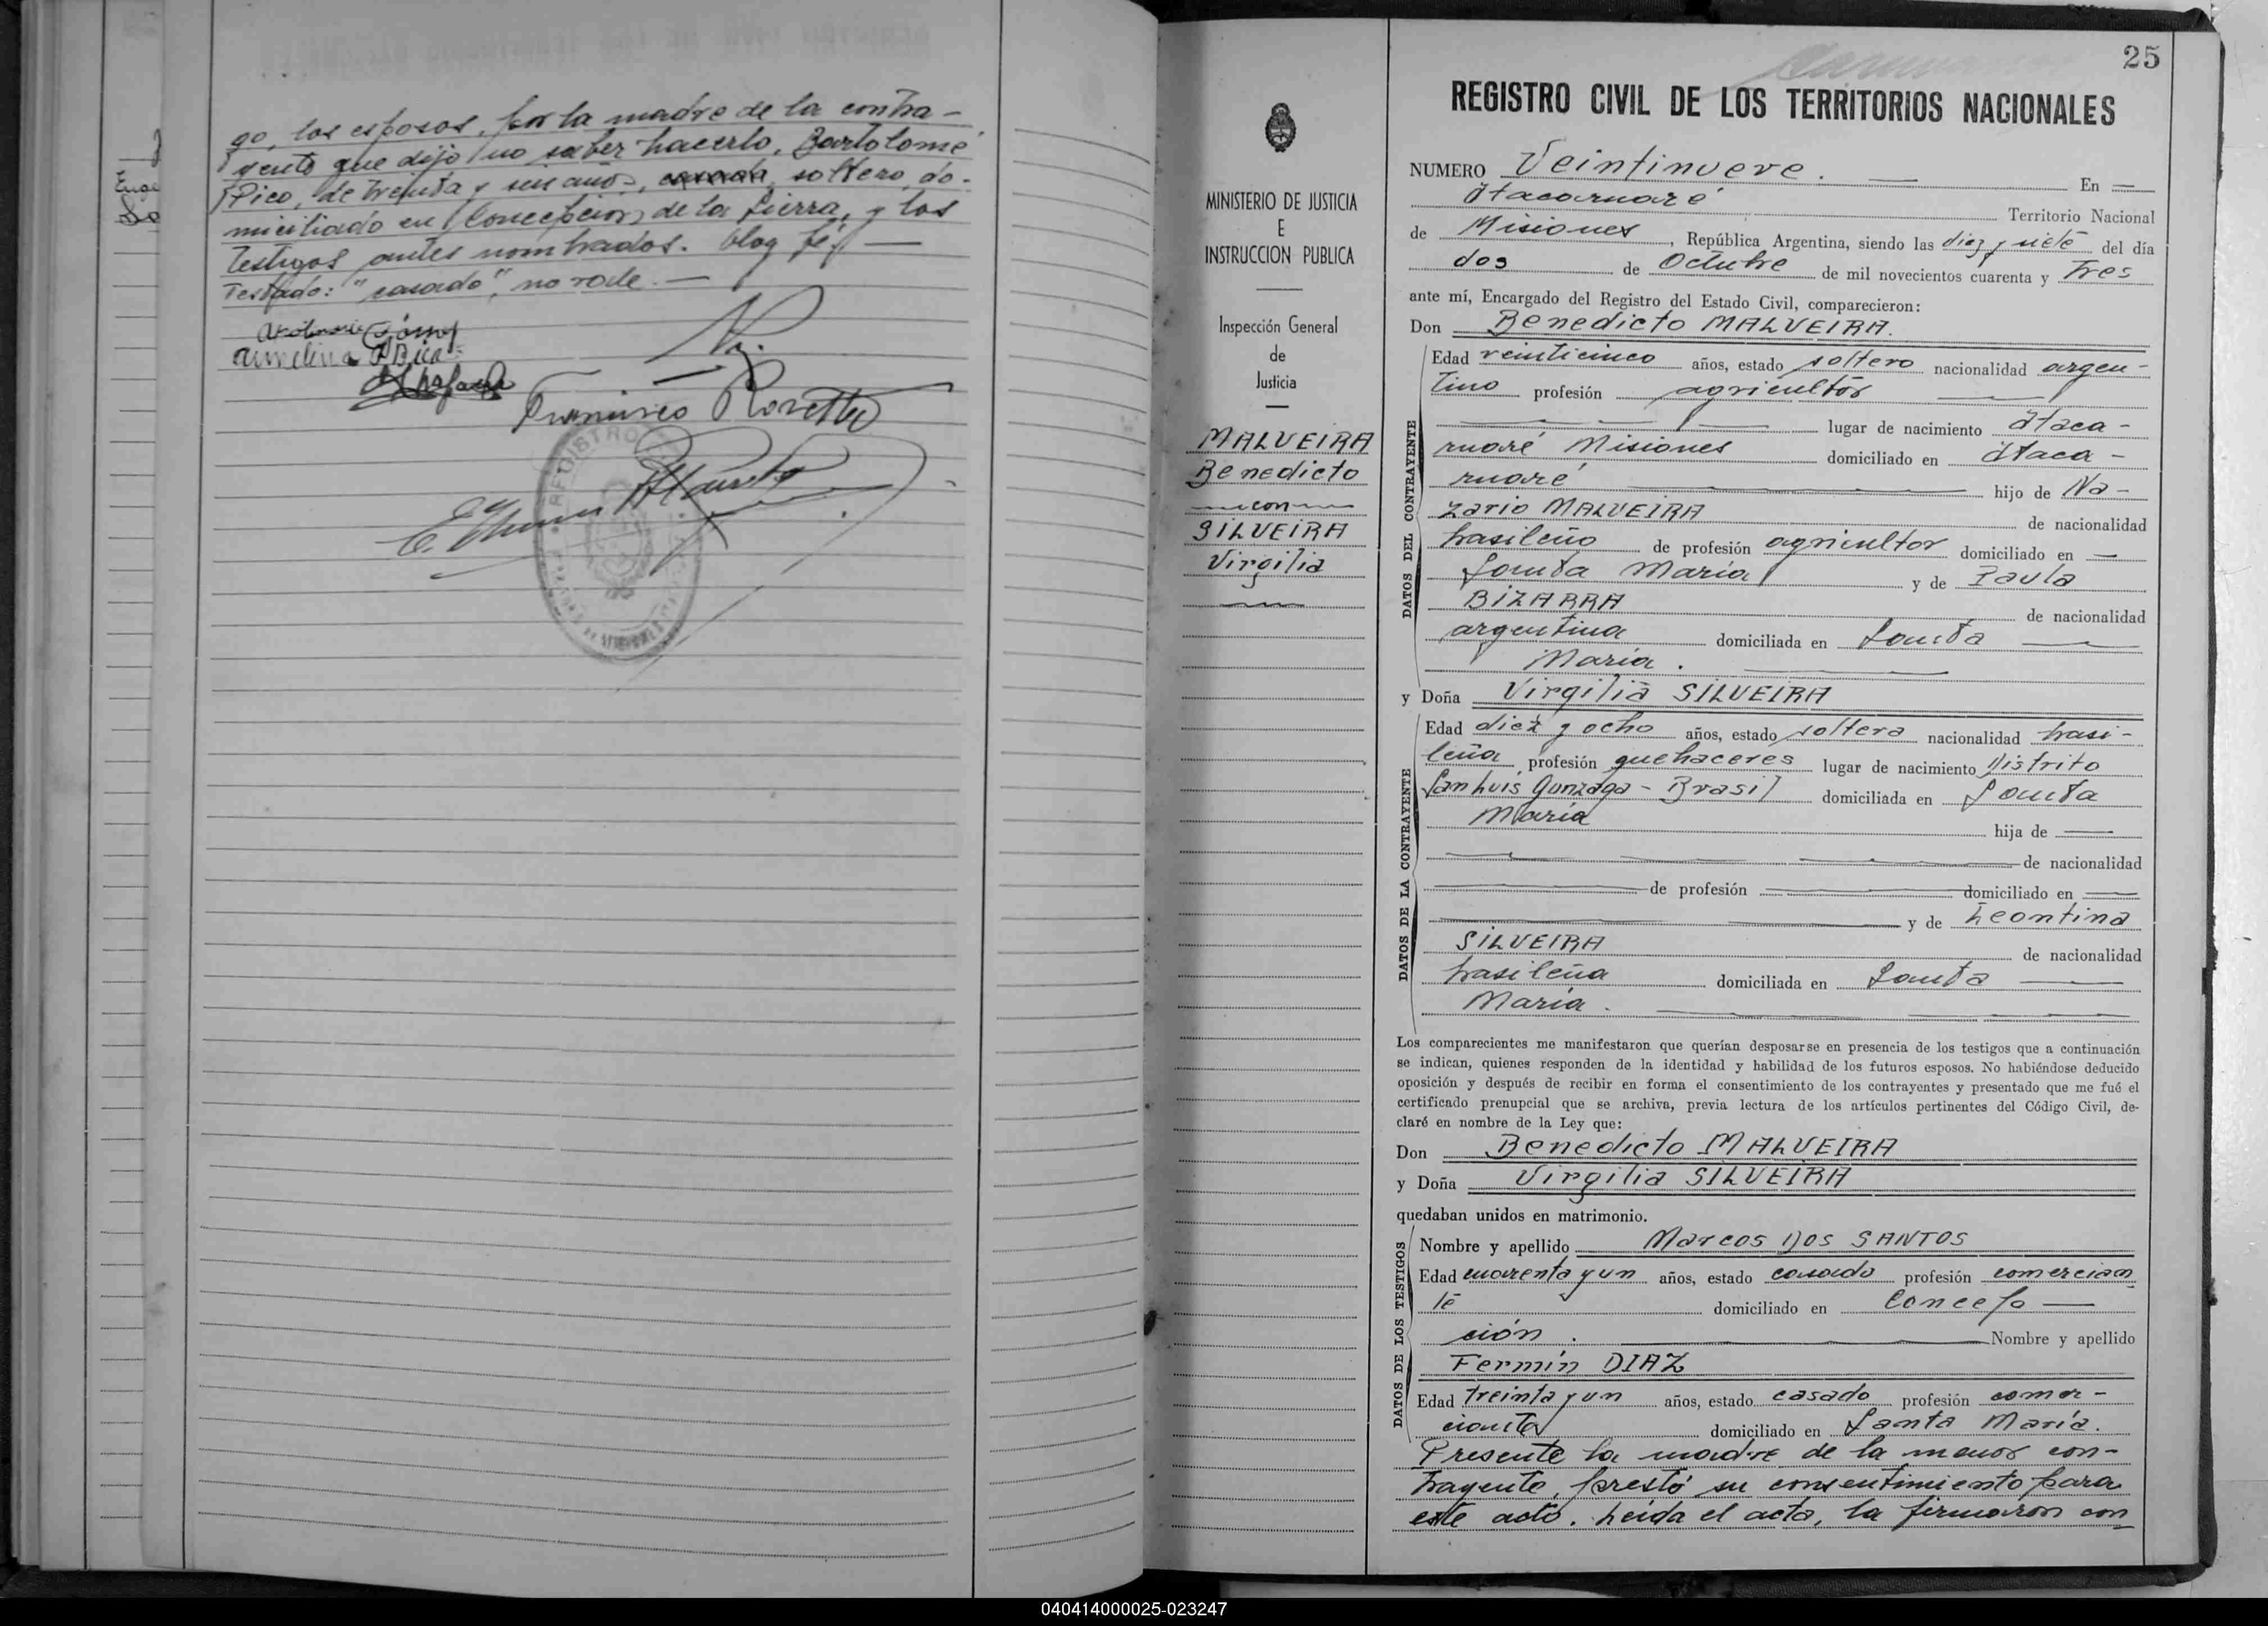 go, los esposos, por la madre de la contra-
yente que dijo no saber hacerlo, Bartolomé
Pico, de treinta y seis años, casado, soltero, do-
miciliado en Concepción de la Sierra, y los
testigos antes nombrados. Doy fé. —
Testado: "casado", no vale. —
Francisco
REGISTRO
25
REGISTRO CIVIL DE LOS TERRITORIOS NACIONALES
MINISTERIO DE JUSTICIA
E
INSTRUCCION PUBLICA
Inspección General
de
Justicia
MALVEIRA
Benedicto
— con —
SILVEIRA
Virgilia
NUMERO Veintinueve. — En —
Itacaruaré Territorio Nacional
de Misiones, República Argentina, siendo las diez y siete del día
dos de Octubre de mil novecientos cuarenta y tres
ante mí, Encargado del Registro del Estado Civil, comparecieron:
Don Benedicto MALVEIRA.
DATOS DEL CONTRAYENTE
Edad veinticinco años, estado soltero nacionalidad argen-
tino profesión agricultor —
— lugar de nacimiento Itaca-
ruaré Misiones domiciliado en Itaca-
ruaré — hijo de Na-
zario MALVEIRA de nacionalidad
brasileño de profesión agricultor domiciliado en —
Santa María y de Paula
BIZARRA de nacionalidad
argentina domiciliada en Santa —
María. —
y Doña Virgilia SILVEIRA
DATOS DE LA CONTRAYENTE
Edad diez y ocho años, estado soltera nacionalidad brasi-
leña profesión quehaceres lugar de nacimiento Distrito
San Luis Gonzaga - Brasil domiciliada en Santa
María hija de —
— de nacionalidad
— de profesión — domiciliado en —
— y de Leontina
SILVEIRA de nacionalidad
brasileña domiciliada en Santa —
María. —
Los comparecientes me manifestaron que querían desposarse en presencia de los testigos que a continuación
se indican, quienes responden de la identidad y habilidad de los futuros esposos. No habiéndose deducido
oposición y después de recibir en forma el consentimiento de los contrayentes y presentado que me fué el
certificado prenupcial que se archiva, previa lectura de los artículos pertinentes del Código Civil, de-
claré en nombre de la Ley que:
Don Benedicto MALVEIRA
y Doña Virgilia SILVEIRA
quedaban unidos en matrimonio.
DATOS DE LOS TESTIGOS
Nombre y apellido Marcos DOS SANTOS
Edad cuarenta y un años, estado casado profesión comercian
te domiciliado en Concep —
ción. — Nombre y apellido
Fermín DIAZ
Edad treinta y un años, estado casado profesión comer-
ciante domiciliado en Santa María.
Presente la madre de la menor con-
trayente, prestó su consentimiento para
este acto. Leída el acta, la firmaron con
040414000025-023247